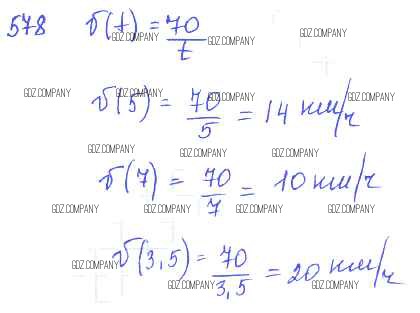 578 v(t) = 70/t
GDZ.COMPANY GDZ.COMPANY GDZ.COMPANY
GDZ.COMPANY GDZ.COMPANY GDZ.COMPANY GDZ.COMPANY
v(5) = 70/5 = 14 км/ч
GDZ.COMPANY GDZ.COMPANY GDZ.COMPANY
v(7) = 70/7 = 10 км/ч
GDZ.COMPANY GDZ.COMPANY GDZ.COMPANY GDZ.COMPANY
v(3,5) = 70/3,5 = 20 км/ч
GDZ.COMPANY GDZ.COMPANY GDZ.COMPANY
GDZ.COMPANY GDZ.COMPANY